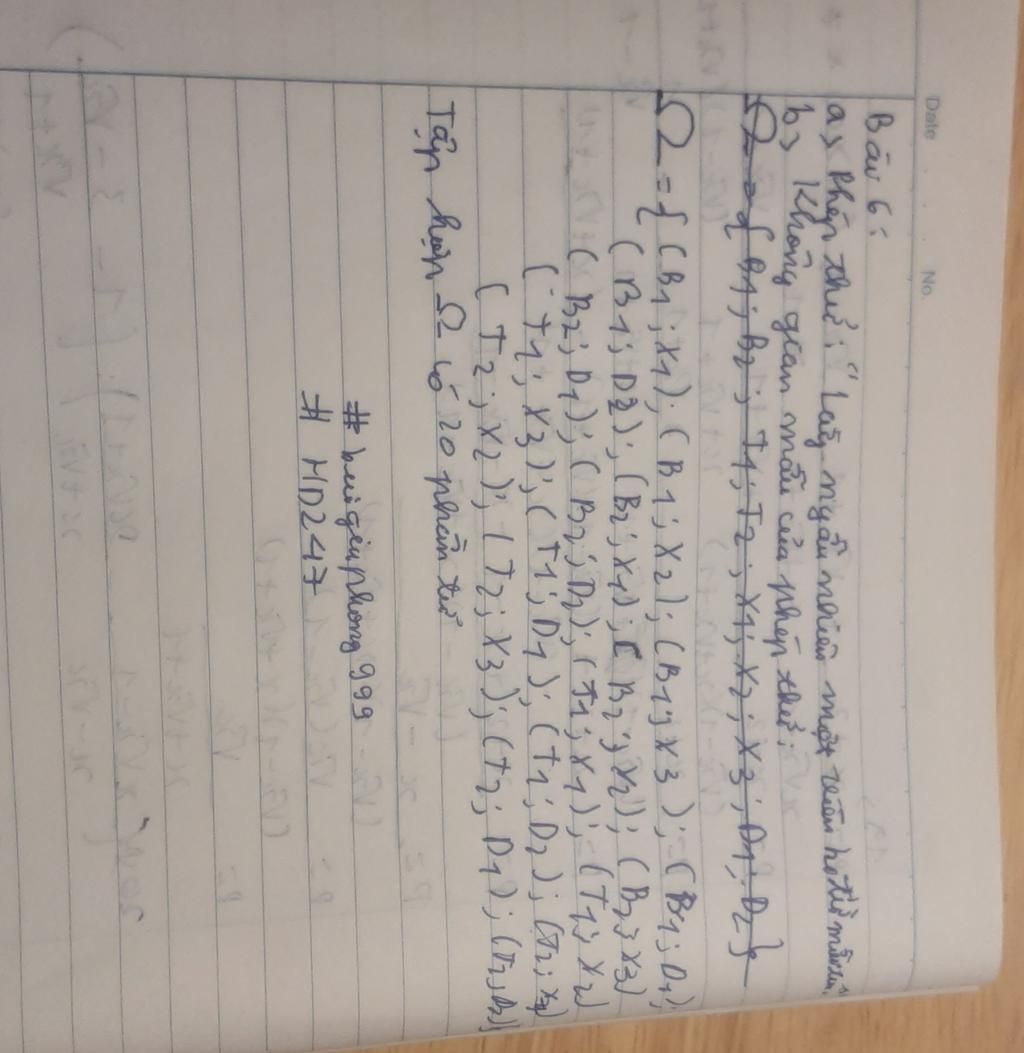 Date No.
Bài 6:
a) Phép thử: "Lấy ngẫu nhiên một viên bi từ mỗi
b) Không gian mẫu của phép thử:
Ω = { B1; B2; T1; T2; X1; X2; X3; D1; D2 }
Ω = { (B1; X1); (B1; X2); (B1; X3); (B1; D1);
(B1; D2); (B2; X1); (B2; X2); (B2; X3)
(B2; D1); (B2; D2); (T1; X1); (T1; X2)
(T1; X3); (T1; D1); (T1; D2); (T2; X1)
(T2; X2); (T2; X3); (T2; D1); (T2; D2)
Tập hợp Ω có 20 phần tử
# HD247